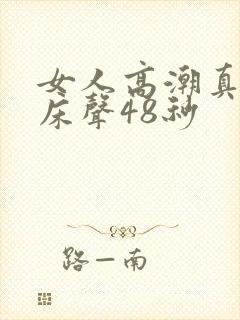 女人高潮真
床聲48秒
路一南